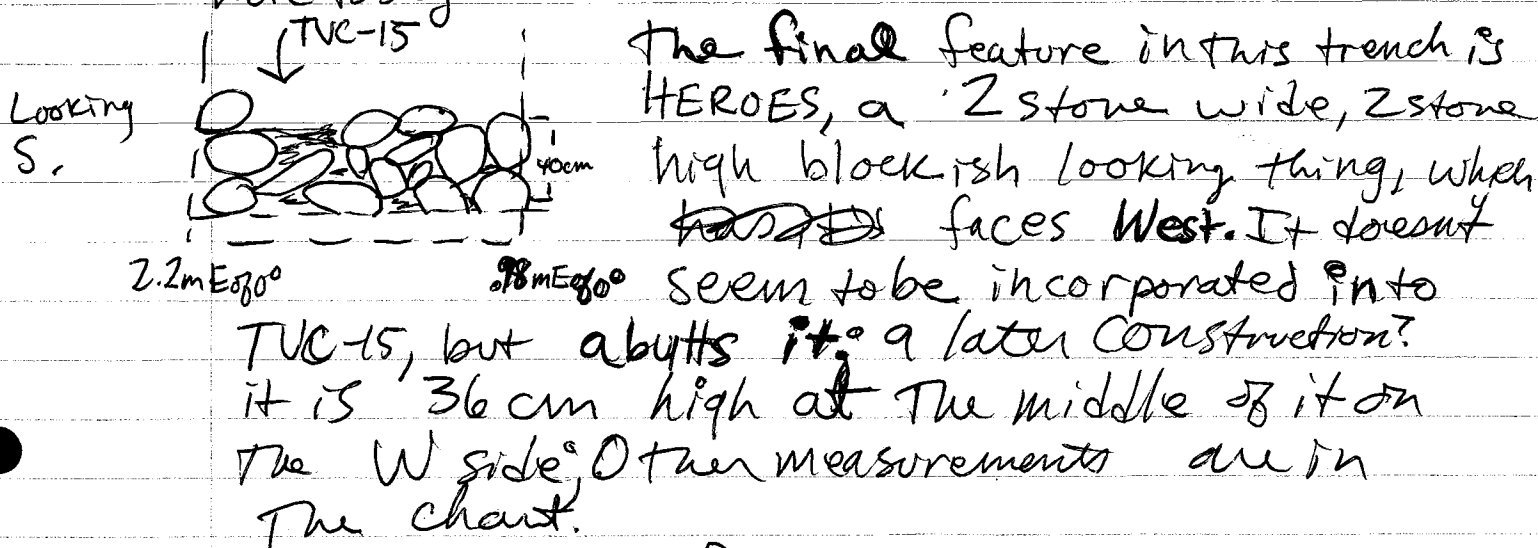 TVC-15
Looking
S.
40cm
2.2mEof0°
.98mEof0°
The final feature in this trench is
HEROES, a 2 stone wide, 2 stone
high blockish looking thing, which
faces West. It doesn't
seem to be incorporated into
TVC-15, but abutts it; a later construction?
it is 36cm high at The middle of it on
The W side; Other measurements are in
The chart.